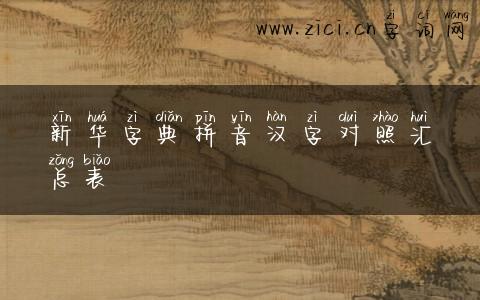 zì cí wǎng
www.zici.cn字词网
xīn huá zì diǎn pīn yīn hàn zì duì zhào huì
新华字典拼音汉字对照汇
zǒng biǎo
总表